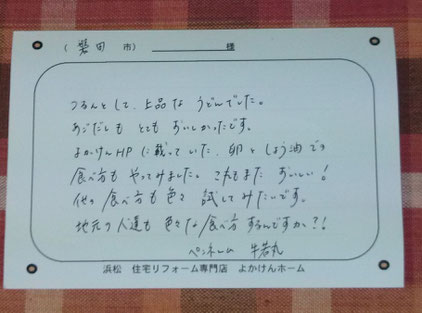 (磐田 市) 様
つるんとして、上品な うどんでした。
あごだしも とても おいしかったです。
よかけんHPに載っていた、卵としょう油での
食べ方も やってみました。これもまた おいしい!
他の食べ方も色々 試してみたいです。
地元の人達も 色々な食べ方するんですか?!
ペンネーム 牛若丸
浜松 住宅リフォーム専門店 よかけんホーム